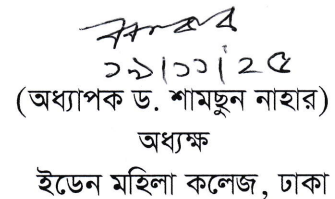 ১৯|১১|২৫
(অধ্যাপক ড. শামছুন নাহার)
অধ্যক্ষ
ইডেন মহিলা কলেজ, ঢাকা